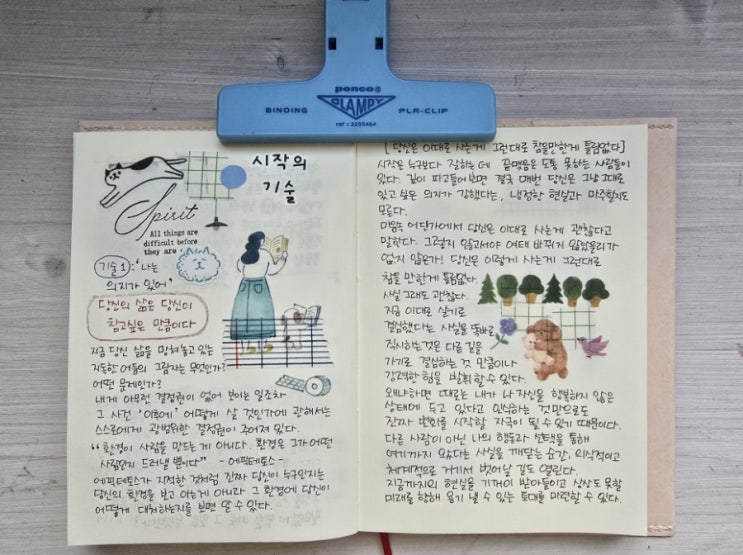 penco®
BINDING CLAMPY PLR-CLIP
ref : 3255464
시작의
기술
Spirit
All things are
difficult before
they are
기술 1 : '나는
의지가 있어'
당신의 삶은 당신이
참고싶은 만큼이다
지금 당신 삶을 망쳐놓고 있는
지독한 어둠의 그림자는 무엇인가?
어떤 문제인가?
내게 아무런 결정권이 없어 보이는 일조차
그 사건 '이후에' 어떻게 살 것인가에 관해서는
스스로에게 광범위한 결정권이 주어져 있다.
"환경이 사람을 만드는 게 아니다. 환경은 그가 어떤
사람인지 드러낼 뿐이다" - 에픽테토스 -
에픽테토스가 지적한 것처럼 진짜 당신이 누구인지는
당신의 환경을 보고 아는게 아니라 그 환경에 당신이
어떻게 대처하는지를 보면 알 수 있다.
[당신은 이대로 사는게 그런대로 참을만한게 틀림없다]
시작은 누구보다 잘하는데 끝맺음은 도통 못하는 사람들이
있다. 깊이 파고들어보면 결국 매번 당신은 그냥 그대로
있고 싶은 의지가 강했다는, 냉정한 현실과 마주할지도
모른다.
마음속 어딘가에서 당신은 이대로 사는게 괜찮다고
말한다. 그렇지 않고서야 여태 바뀌지 않았을리가
없지 않은가! 당신은 이렇게 사는게 그런대로
참을 만한게 틀림없다.
사실 그래도 괜찮다.
지금 이대로 살기로
결심했다는 사실을 똑바로
직시하는것은 다른 길을
가기로 결심하는 것 만큼이나
강력한 힘을 발휘할 수 있다.
왜냐하면 때로는 내가 나 자신을 행복하지 않은
상태에 두고 있다고 인식하는 것 만으로도
진짜 변화를 시작할 자극이 될 수 있기 때문이다.
다른 사람이 아닌 나의 행동과 선택을 통해
여기까지 왔다는 사실을 깨닫는 순간, 의식적이고
체계적으로 거기서 벗어날 길도 열린다.
지금까지의 현실을 기꺼이 받아들이고 상상도 못할
미래를 향해 옮겨 낼 수 있는 토대를 마련할 수 있다.